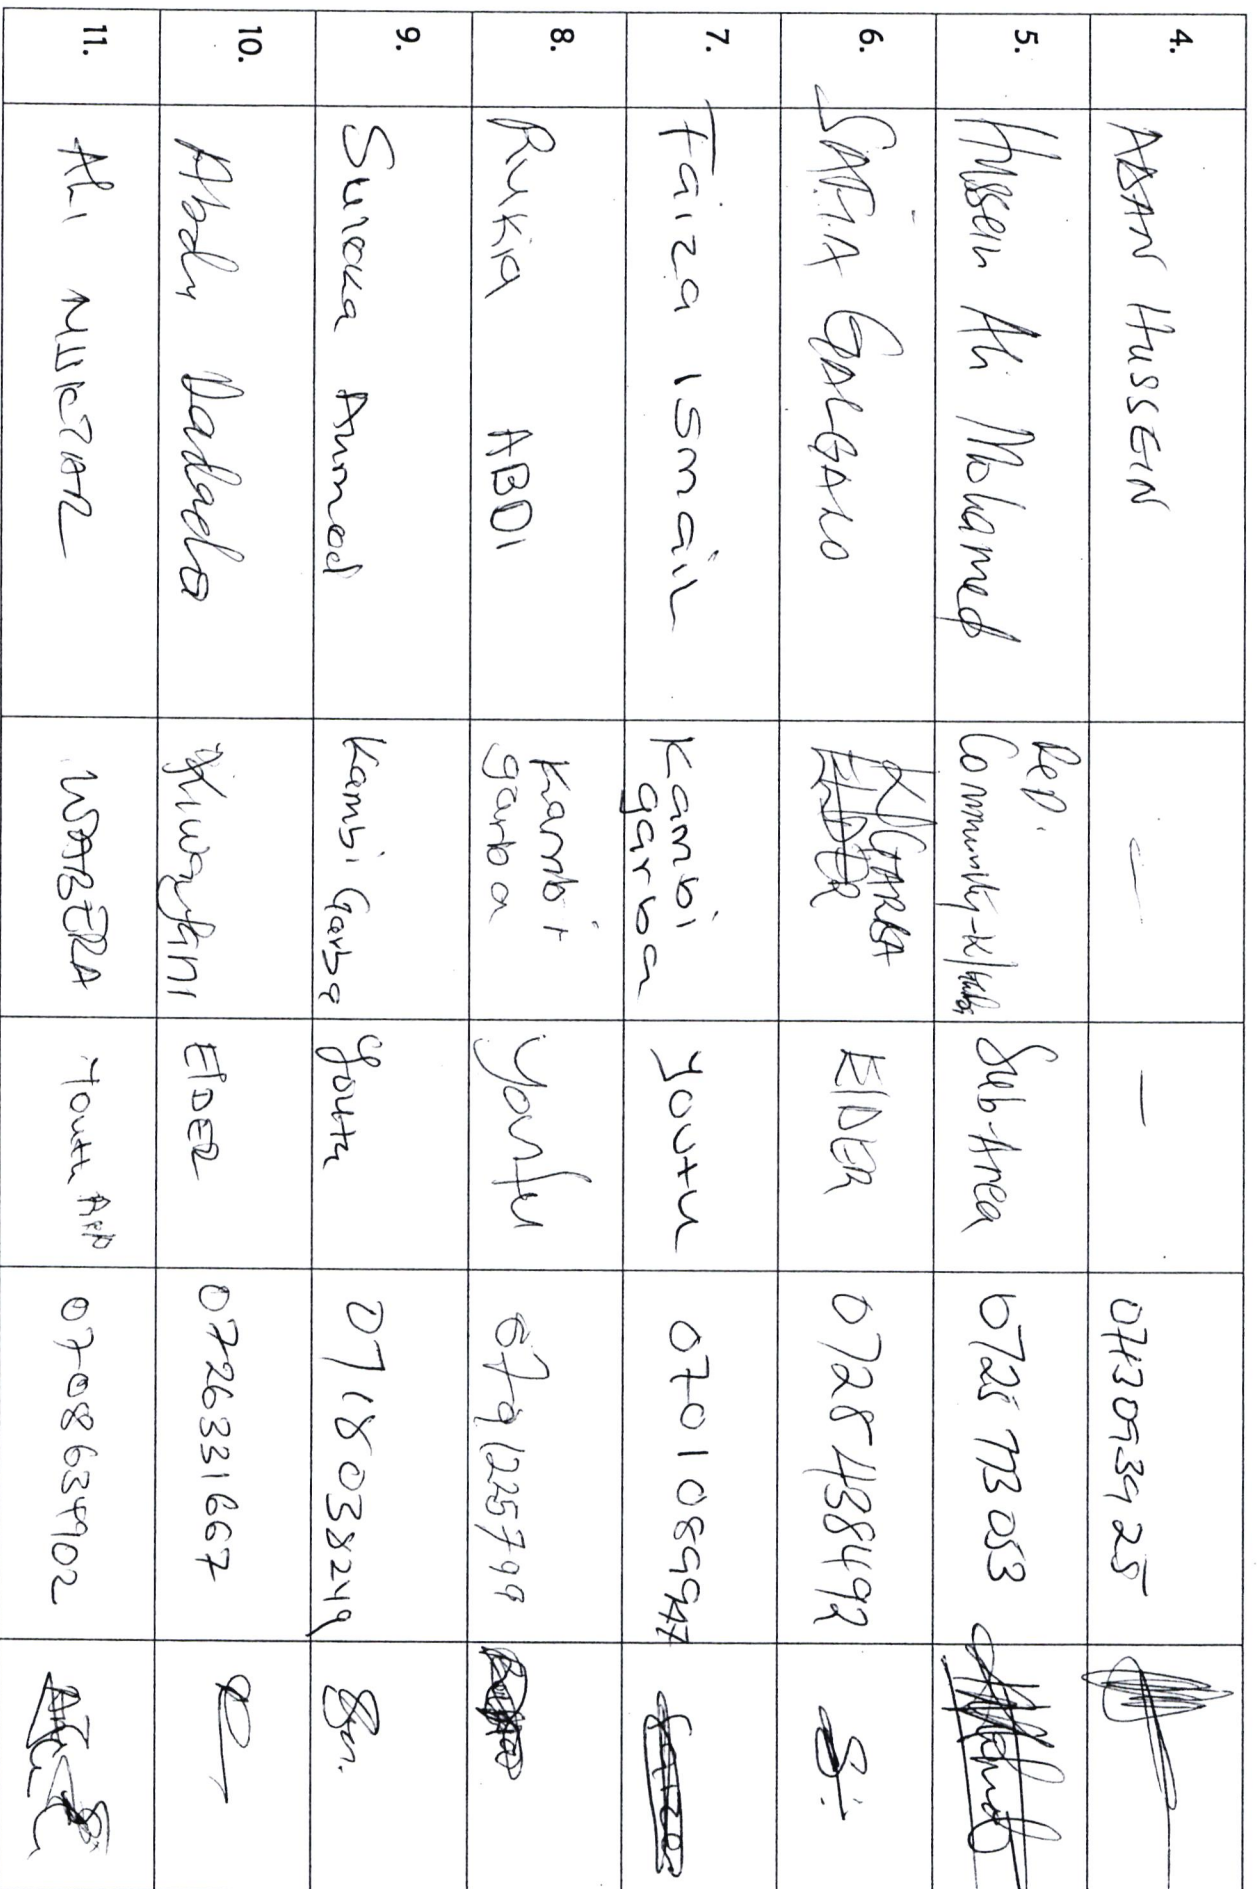 4. ADAN HUSSEIN — — 0713093925
5. Hussein Ali Mohamed Rep. Community-K/Garba Sub-Area 0725 773 053
6. SAFIA GALGALO K/GARBA ElDER 0728438492
7. Faiza Ismail Kambi garba youth 0701089947
8. Rukia ABDI Kambi garba youth 0791225799
9. Kambi Garba youth 0718038249
10. Abdi Dadacho ElDER 0726331667
11. Ali WABERA Youth 0708634902